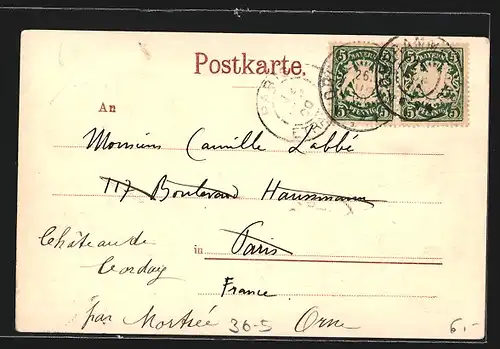 Postkarte.
BAYERN BAYERN
5 5 5 5
PFENNIG PFENNIG
An
Monsieur Camille Labbé
117 Boulevard Haussmann
Château de
in Paris
Corday
France
par Mortrée 36-5 Orne 6,-